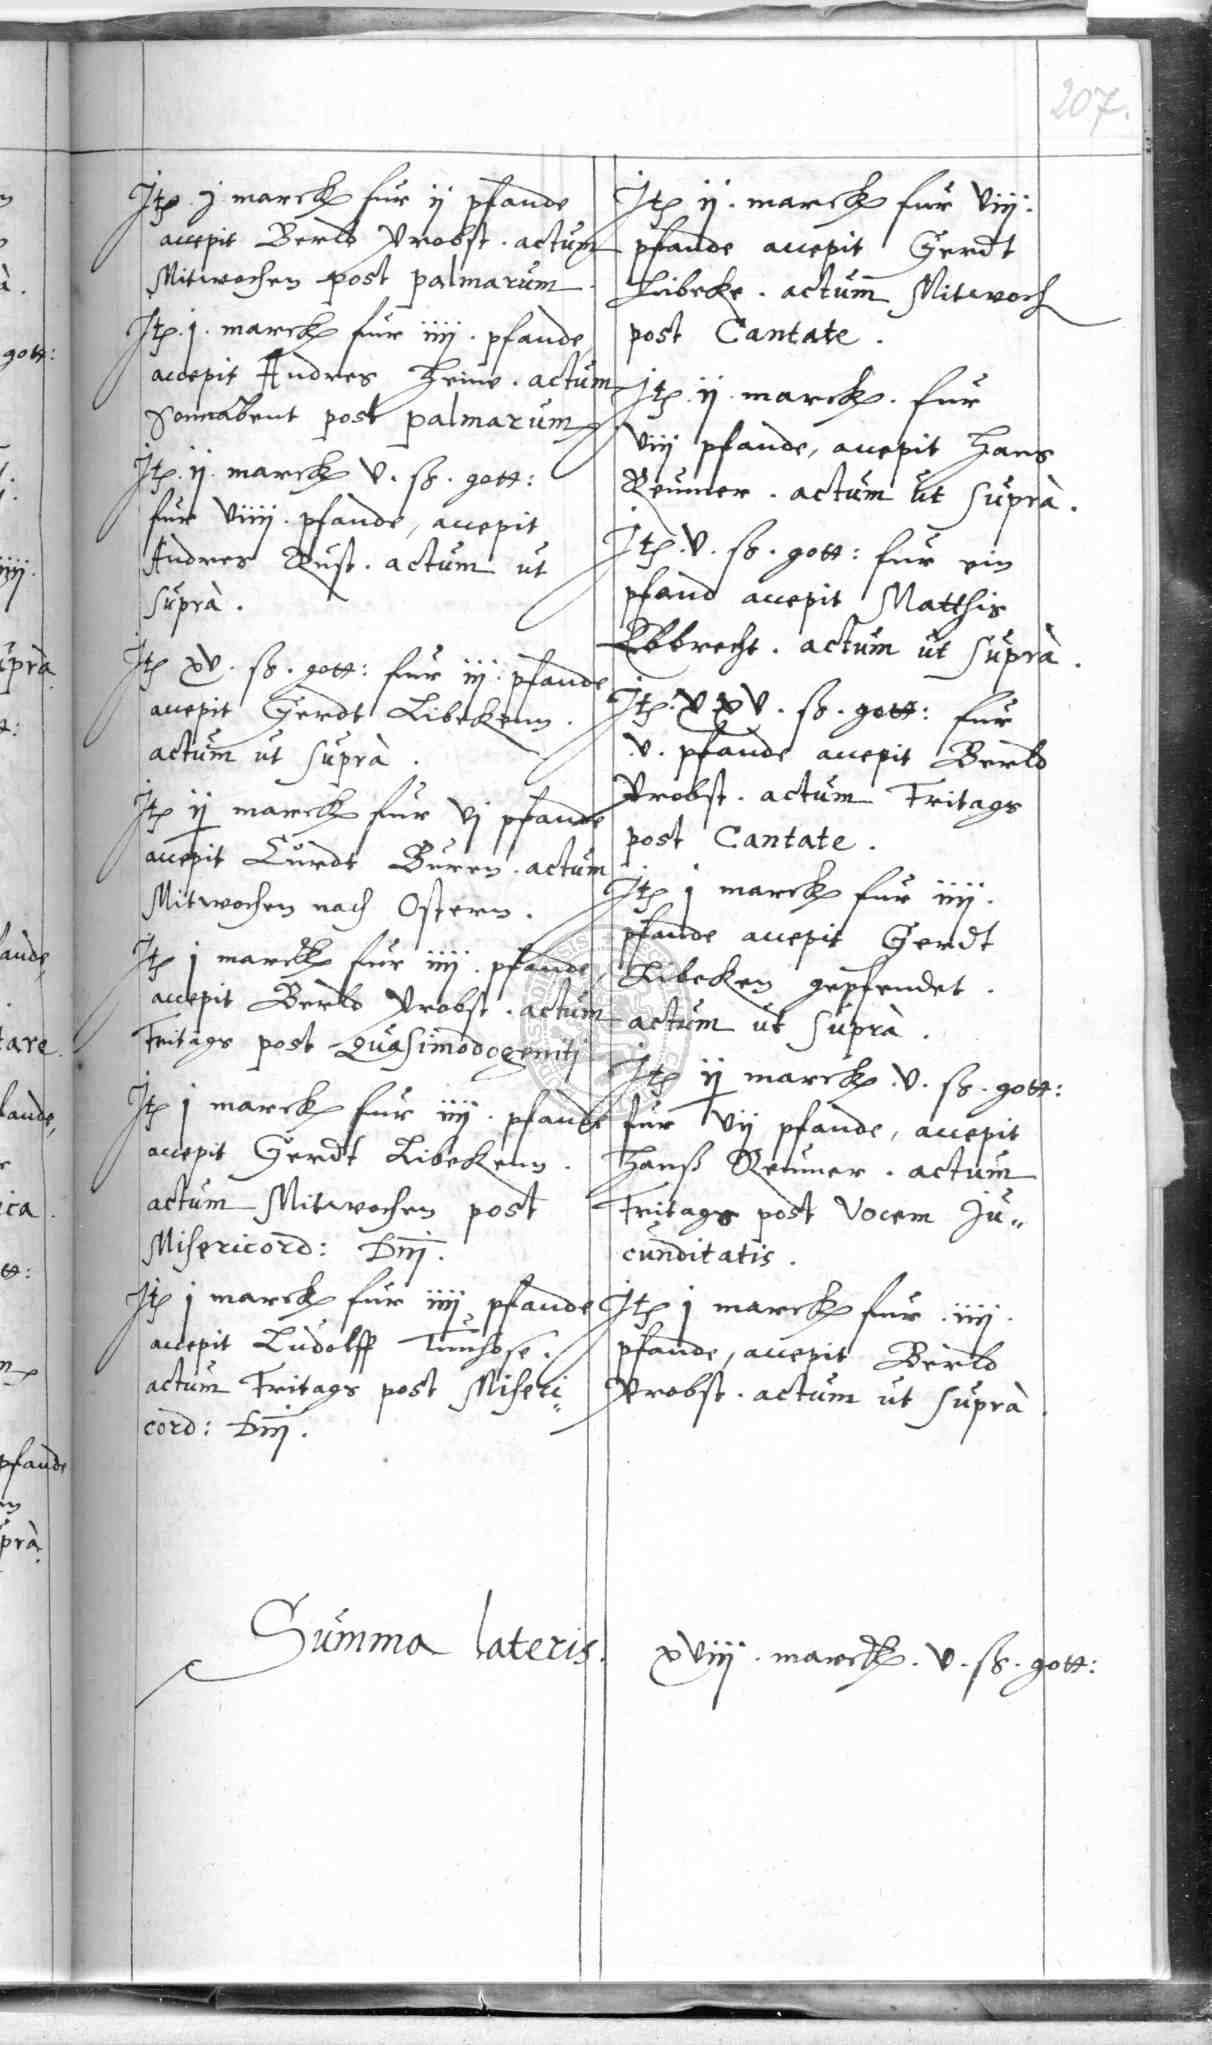 207.
Jtꝫ j marck fur ij pfande
accepit Berld Probst. actum
Mitwochen post palmarum.
Jtꝫ. j. marck fur iiij. pfande,
accepit Andres Heine. actum
Sonnabent post palmarum
Jtꝫ. ij. marck v. ß. gott:
fur viiij. pfande, accepit
Andres Rust. actum ut
suprà.
Jtꝫ xv. ß. gott: fur iij: pfande
accepit Gerdt Libekenn.
actum ut suprà.
Jtꝫ ij marck fur vj pfande
accepit Curdt Buren. actum
Mitwochen nach Ostern.
Jtꝫ j marck fur iiij. pfande,
accepit Berld Probst. actum
Fritags post Quasimodogenitj
Jtꝫ j marck fur iiij. pfande
accepit Gerdt Libekenn.
actum Mitwochen post
Misericord: Dnj.
Jtꝫ j marck fur iiij pfande
accepit Ludolff
actum Fritags post Miseri„
cord: Dnj.
Jtꝫ ij. marck fur viij:
pfande accepit Gerdt
Libecke. actum Mitwoch
post Cantate.
Jtꝫ. ij. marck. fur
viij pfande, accepit Hans
Reumer. actum ut suprà.
Jtꝫ. v. ß. gott: fur ein
pfand accepit Matthis
Ebbrecht. actum ut suprà.
Jtꝫ. v xv. ß. gott: fur
v. pfande accepit Berld
Probst. actum Fritags
post Cantate.
Jtꝫ j marck fur iiij.
pfande accepit Gerdt
Libeken gepfendet.
actum ut suprà.
Jtꝫ ij marck. v. ß. gott:
fur vij pfande, accepit
Hanß Reumer. actum
Fritags post Vocem Ju„
cunditatis.
Jtꝫ j marck fur. iiij.
pfande, accepit Berld
Probst. actum ut suprà.
Summa lateris. xviij. marck. v. ß. gott: